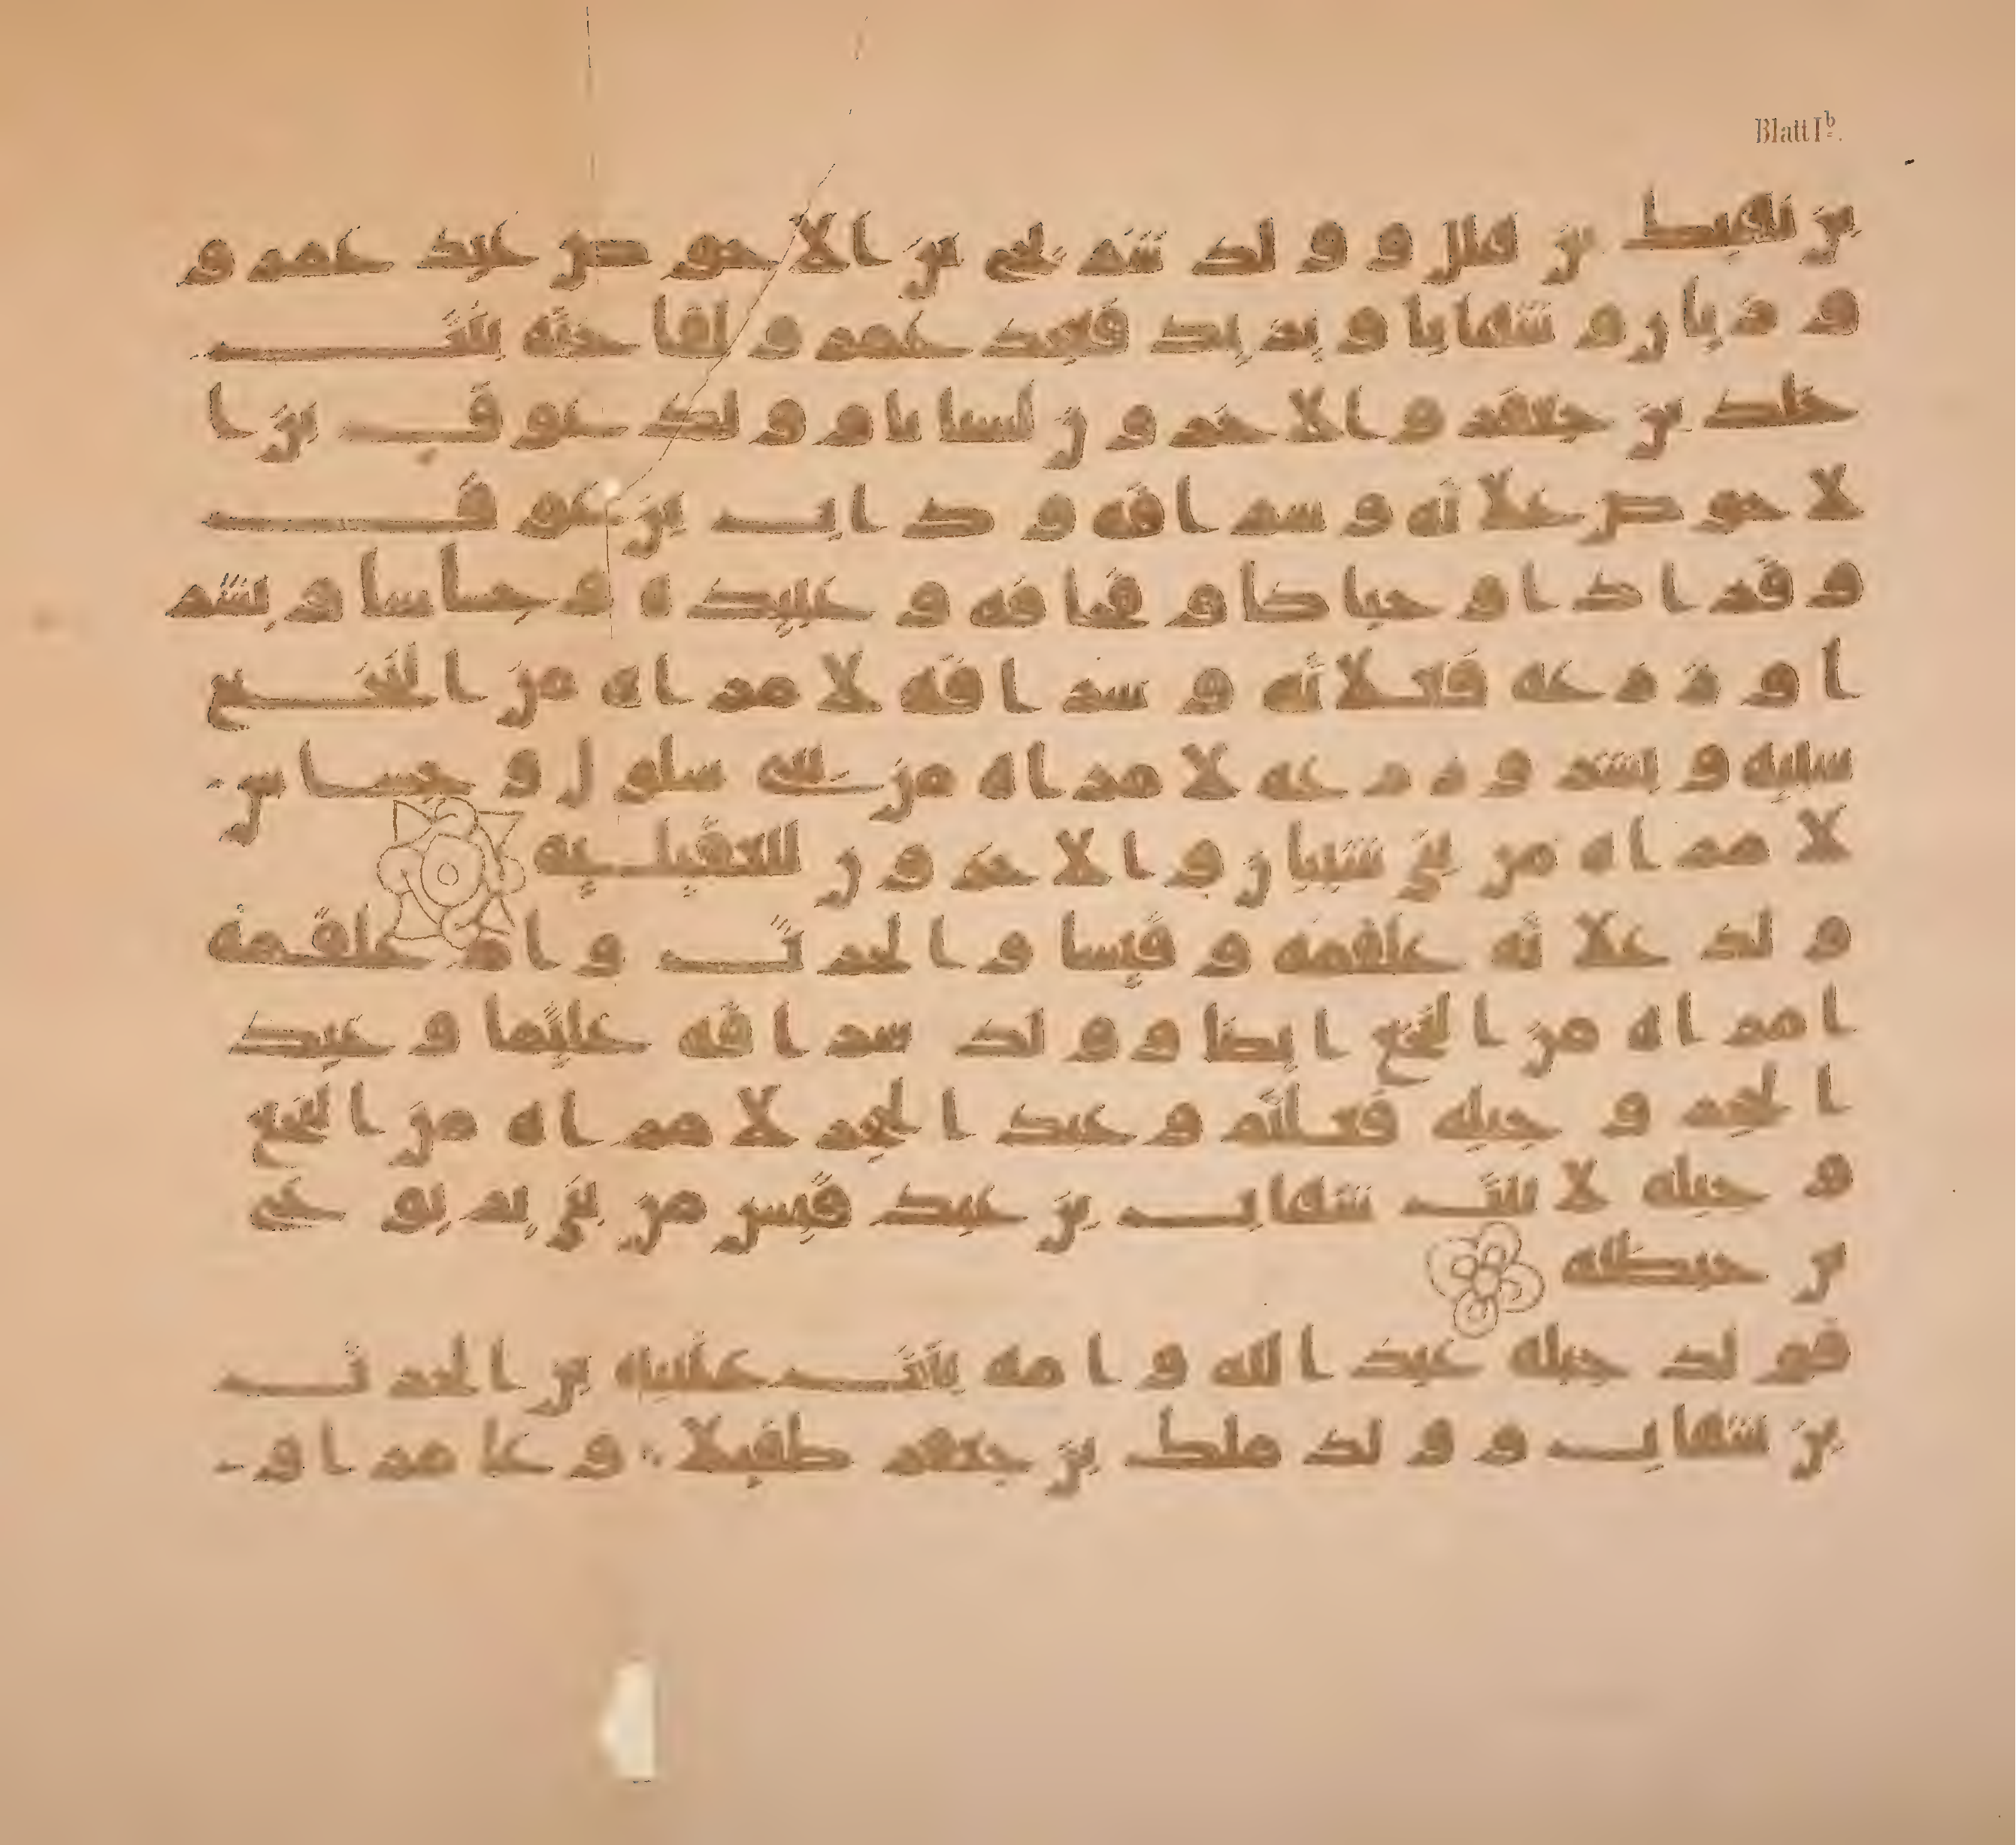 Blatt Iᵇ.
بن لقيط بن هلل وولد شريح بن الاحوص عبد عمرو
و ديار و شهابا و يزيد فعبد عمرو لقا حته بنت
خلد بن جعفر والاخرون لسبايا وولد عوف بن ا
لاحوص علاثه وسراقه و داب بن عوف
و قرادا و حباضا و قحافه و عبيده و حباسا و بشر
ا و دمخه فعلاثه و سراقه لامراه من النخع
سبيه و بشر و دمخه لامراه من بني سلول و حباس
لامراه من بني شيبان والاخرون للعقيليه
ولد علاثه علقمه و قيسا والحرث وام علقمه
امراه من النخع ايضا وولد سراقه علثما وعبد
الحجر و جبله فعلثم وعبد الحجر لامراه من النخع
و جبله لابنت شهاب بن عبد قيس من بني يربوع
بن حنظله
فولد جبله عبد الله وامه بنت عتيبه بن الحرث
بن شهاب وولد ملك بن جعفر طفيلا وعامرا و